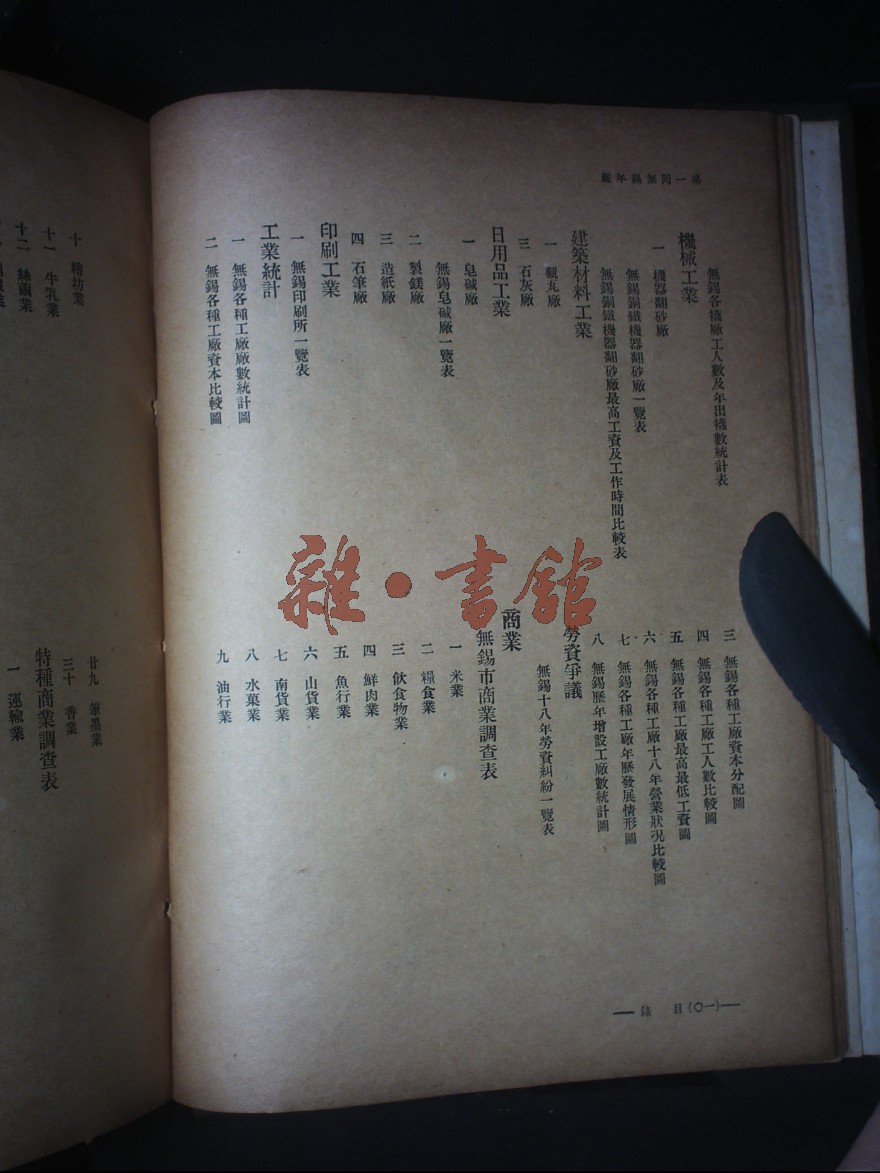 第一回無錫年鑑
無錫各襪廠工人數及年出襪數統計表
機械工業
一 機器翻砂廠
無錫銅鐵機器翻砂廠一覽表
無錫銅鐵機器翻砂廠最高工資及工作時間比較表
建築材料工業
一 甎瓦廠
三 石灰廠
日用品工業
一 皂碱廠
無錫皂碱廠一覽表
二 製鎂廠
三 造紙廠
四 石筆廠
印刷工業
一 無錫印刷所一覽表
工業統計
一 無錫各種工廠廠數統計圖
二 無錫各種工廠資本比較圖
三 無錫各種工廠資本分配圖
四 無錫各種工廠工人數比較圖
五 無錫各種工廠最高最低工資圖
六 無錫各種工廠十八年營業狀況比較圖
七 無錫各種工廠年歷發展情形圖
八 無錫歷年增設工廠數統計圖
勞資爭議
無錫十八年勞資糾紛一覽表
商業
無錫市商業調查表
一 米業
二 糧食業
三 飲食物業
四 鮮肉業
五 魚行業
六 山貨業
七 南貨業
八 水菓業
九 油行業
目錄 (一〇)
雜·書館
十 糟坊業
十一 牛乳業
十二 絲繭業
廿九 筆墨業
三十 香業
特種商業調查表
一 運輸業